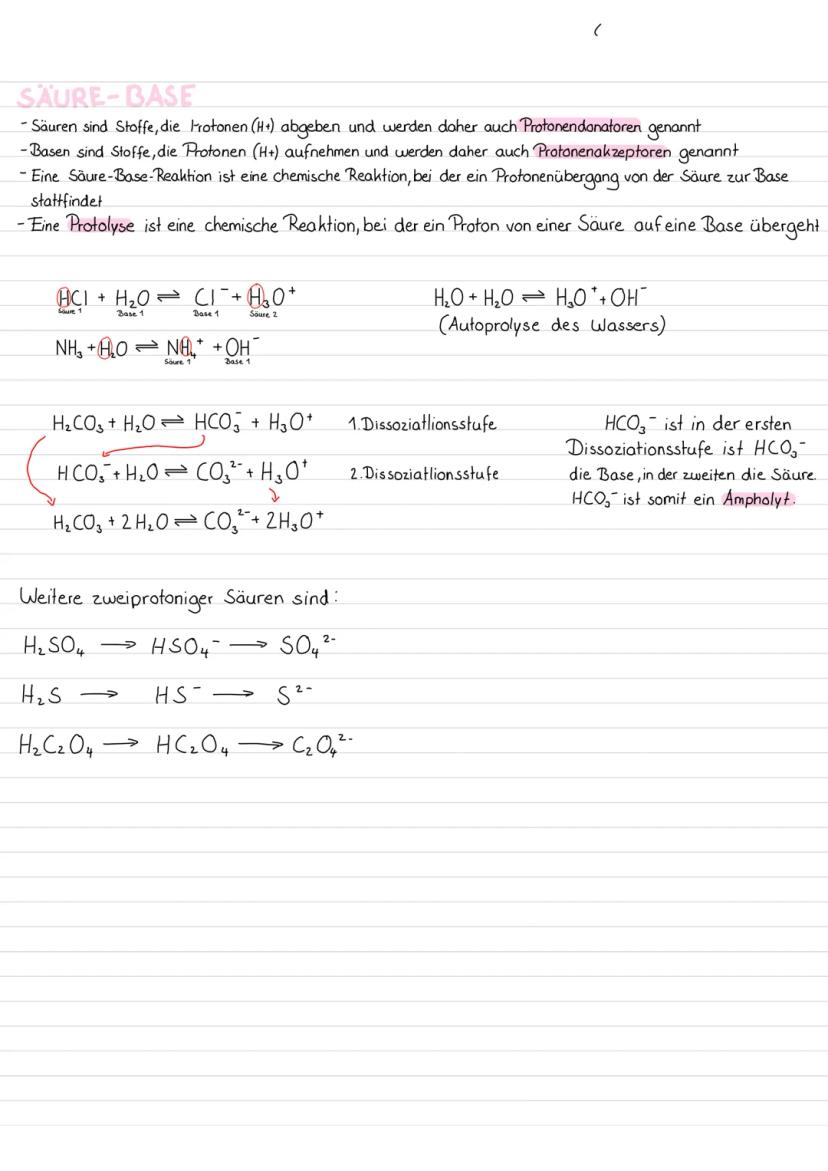 SÄURE-BASE
- Säuren sind Stoffe, die Protonen (H+) abgeben und werden daher auch Protonendonatoren genannt
- Basen sind Stoffe, die Protonen (H+) aufnehmen und werden daher auch Protonenakzeptoren genannt
- Eine Säure-Base-Reaktion ist eine chemische Reaktion, bei der ein Protonenübergang von der Säure zur Base
stattfindet
- Eine Protolyse ist eine chemische Reaktion, bei der ein Proton von einer Säure auf eine Base übergeht
HCl + H₂O ⇌ Cl⁻ + H₃O⁺
Säure 1 Base 1 Base 1 Säure 2
H₂O + H₂O ⇌ H₃O⁺ + OH⁻
(Autoprolyse des Wassers)
NH₃ + H₂O ⇌ NH₄⁺ + OH⁻
Säure 1 Base 1
H₂CO₃ + H₂O ⇌ HCO₃⁻ + H₃O⁺ 1. Dissoziatlionsstufe
HCO₃⁻ + H₂O ⇌ CO₃²⁻ + H₃O⁺ 2. Dissoziatlionsstufe
H₂CO₃ + 2 H₂O ⇌ CO₃²⁻ + 2H₃O⁺
HCO₃⁻ ist in der ersten
Dissoziationsstufe ist HCO₃⁻
die Base, in der zweiten die Säure.
HCO₃⁻ ist somit ein Ampholyt.
Weitere zweiprotoniger Säuren sind:
H₂SO₄ → HSO₄⁻ → SO₄²⁻
H₂S → HS⁻ → S²⁻
H₂C₂O₄ → HC₂O₄ → C₂O₄²⁻